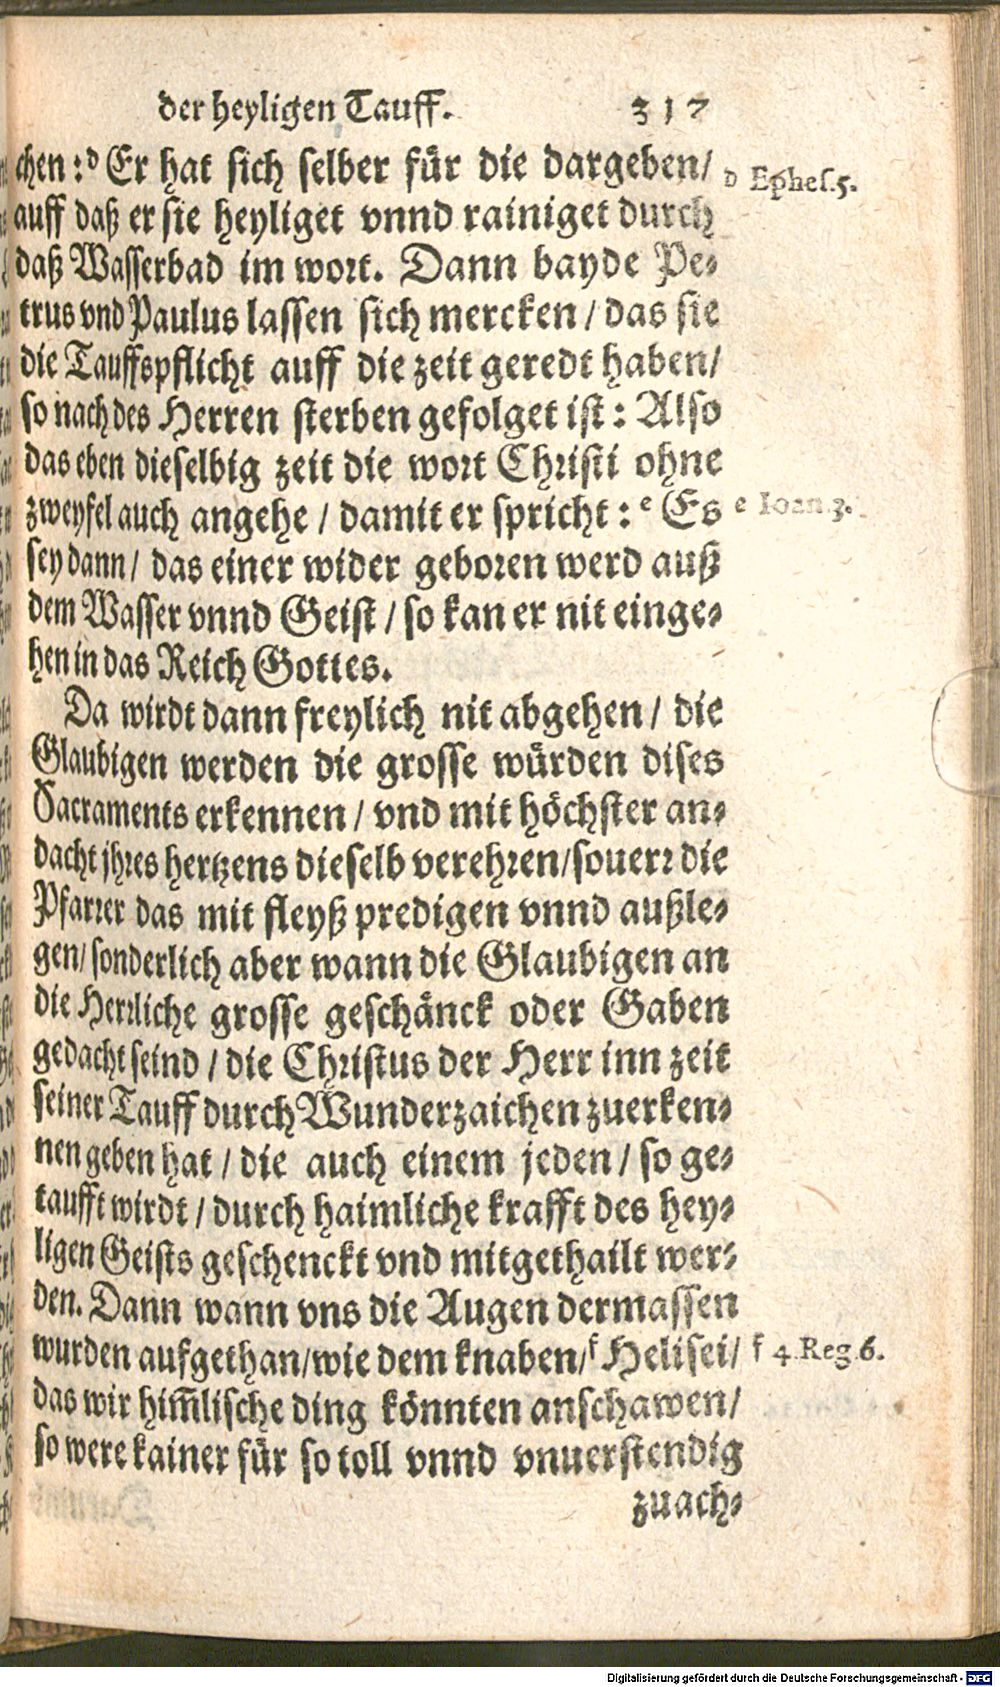 der heyligen Tauff. 317
chen :ᵈ Er hat sich selber für die dargeben/ d Ephes.5.
auff daß er sie heyliget vnnd rainiget durch
daß Wasserbad im wort. Dann bayde Pe⸗
trus vnd Paulus lassen sich mercken / das sie
die Tauffspflicht auff die zeit geredt haben/
so nach des Herren sterben gefolget ist : Also
das eben dieselbig zeit die wort Christi ohne
zweyfel auch angehe / damit er spricht : ᵉ Es e Ioan.3.
sey dann / das einer wider geboren werd auß
dem Wasser vnnd Geist / so kan er nit einge⸗
hen in das Reich Gottes.
Da wirdt dann freylich nit abgehen / die
Glaubigen werden die grosse würden dises
Sacraments erkennen / vnd mit höchster an⸗
dacht jhres hertzens dieselb verehren/souerr die
Pfarrer das mit fleyß predigen vnnd außle⸗
gen/ sonderlich aber wann die Glaubigen an
die Herrliche grosse geschänck oder Gaben
gedacht seind / die Christus der Herr inn zeit
seiner Tauff durch Wunderzaichen zuerken⸗
nen geben hat / die auch einem jeden / so ge⸗
taufft wirdt / durch haimliche krafft des hey⸗
ligen Geists geschenckt vnd mitgethailt wer⸗
den. Dann wann vns die Augen dermassen
wurden aufgethan/wie dem knaben/ᶠ Helisei/ f 4.Reg.6.
das wir him̃lische ding könnten anschawen/
so were kainer für so toll vnnd vnuerstendig
zuach⸗
Digitalisierung gefördert durch die Deutsche Forschungsgemeinschaft - DFG